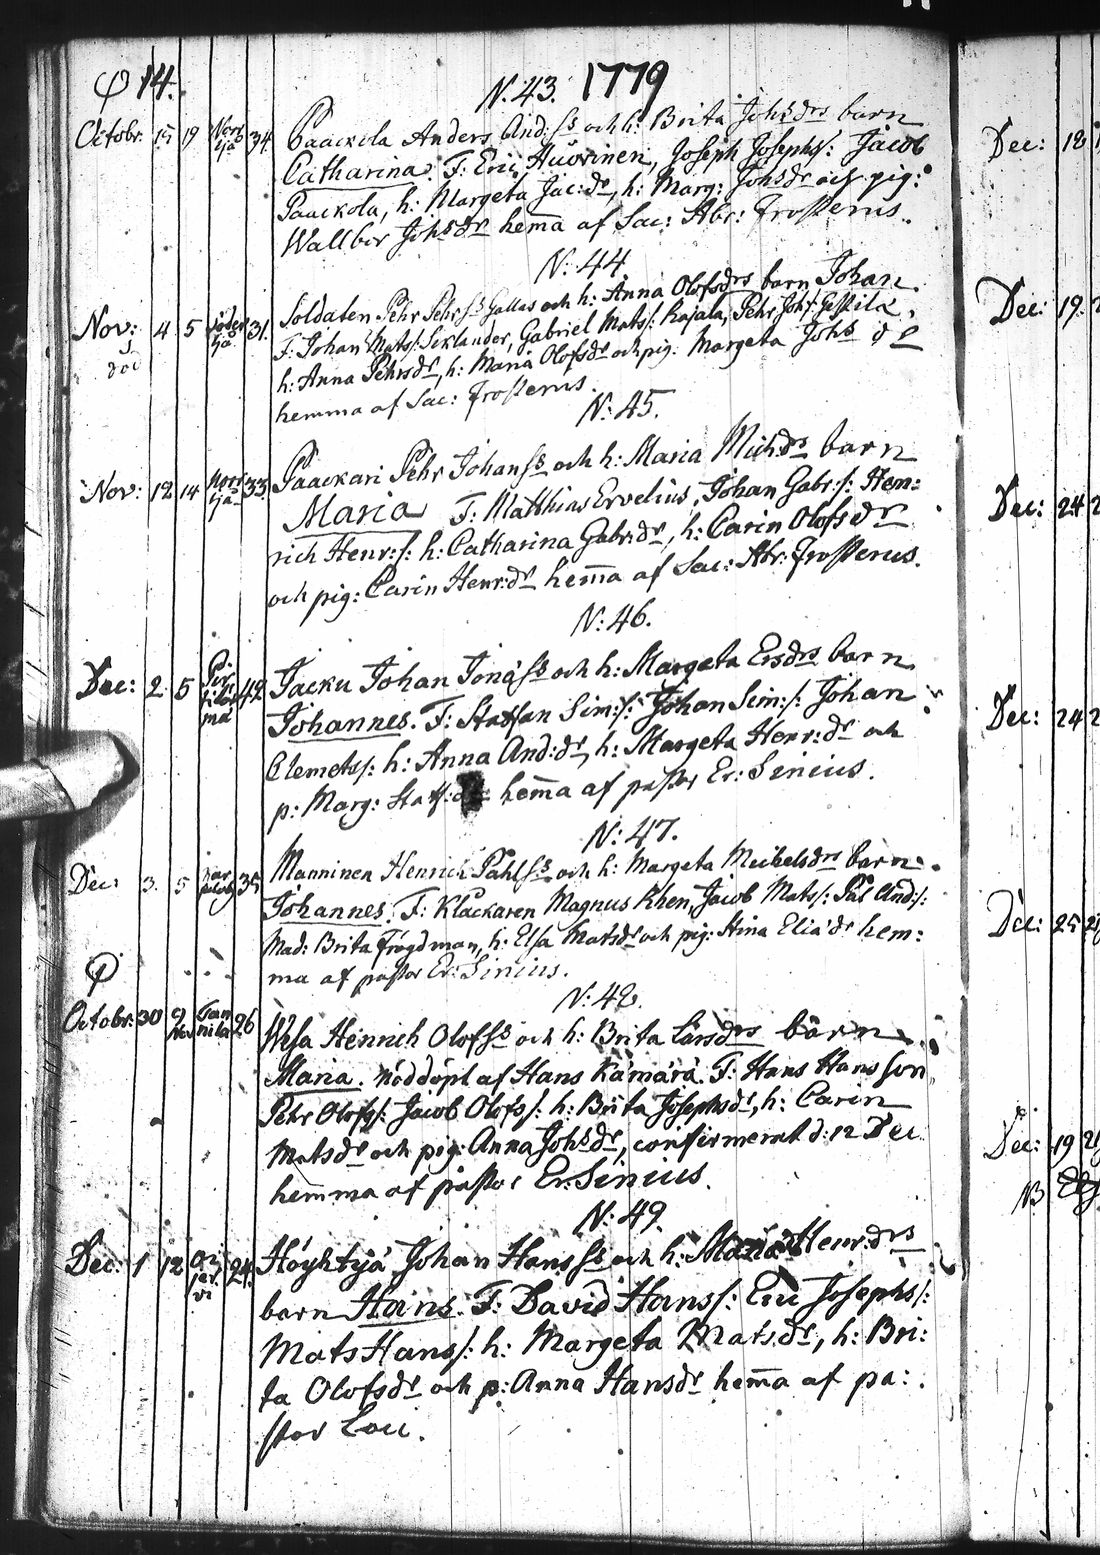 14.
N. 43. 1779
Octobr. 15 19 Norr kjä 34 Paackola Anders And:ss och h: Brita Johsdrs barn
Catharina. F: Eric Huovinen, Joseph Josephs: Jacob
Paackola, h: Margeta Jac:dr, h: Marg: Johsdr och pig:
Wallbor Johsdr hem̄a af Sac: Abr: Frosterus.
N: 44
Nov: 4 5 Söder kjä 31. Soldaten Pehr Pehrss Gallas och h: Anna Olofsdrs barn Johan.
död
F: Johan Mats: Seklander, Gabriel Mats: Rajala, Pehr Johs:
h: Anna Pehrsdr, h: Maria Olofsdr och pig: Margeta Johs dr
hemma af Sac: Frosterus.
N: 45.
Nov: 12 14 Norr kjä 33 Paackari Pehr Johanss och h: Maria Mich:drs barn
Maria F: Matthias Ervelius, Johan Gabr:s: Hen:
rich Henr:s: h: Catharina Gabr:dr, h: Carin Olofsdr
och pig: Carin Henr:dr hem̄a af Sac: Abr: Frosterus.
N: 46.
Dec: 2 5 42 Jacku Johan Jonass och h: Margeta Ersdrs barn
Johannes. F: Staffan Sim:s: Johan Sim:s: Johan
Clemets: h: Anna And:dr, h: Margeta Henr:dr och
p: Marg: Staf:dr hem̄a af pastor Er: Sinius.
N: 47.
Dec: 3. 5 35 Manninen Henrich Påhlss och h: Margeta Meihelsdrs barn
Johannes. F: Klåckaren Magnus Rhen, Jacob Mats: Pål And:s:
Mad: Brita Frågdman, h: Elsa Matsdr och pig: Stina Elia dr hem:
ma af pastor Er: Sinius.
N: 48.
Octobr: 30 9 Nov Tan nila 26 Wesa Henrich Olofss och h: Brita Larsdrs barn
Maria. Nöddöpt af Hans Kämärä. F: Hans Hansson
Pehr Olofs: Jacob Olofs: h: Brita Josephsdr, h: Carin
Matsdr och pig: Anna Johsdr, confirmerat d: 12 Dec
hemma af pastor Er: Sinius.
N: 49.
Dec: 1 12 jer vi 24. Höyhtyä Johan Hansss och h: Maria Henr:drs
barn Hans. F: David Hans: Eric Josephs:
Mats Hans: h: Margeta Matsdr, h: Bri:
ta Olofsdr och p: Anna Hansdr hem̄a af pa:
stor Lou.
Dec: 18
Dec: 19.
Dec: 24
Dec: 24
Dec: 25
Dec: 19
NB